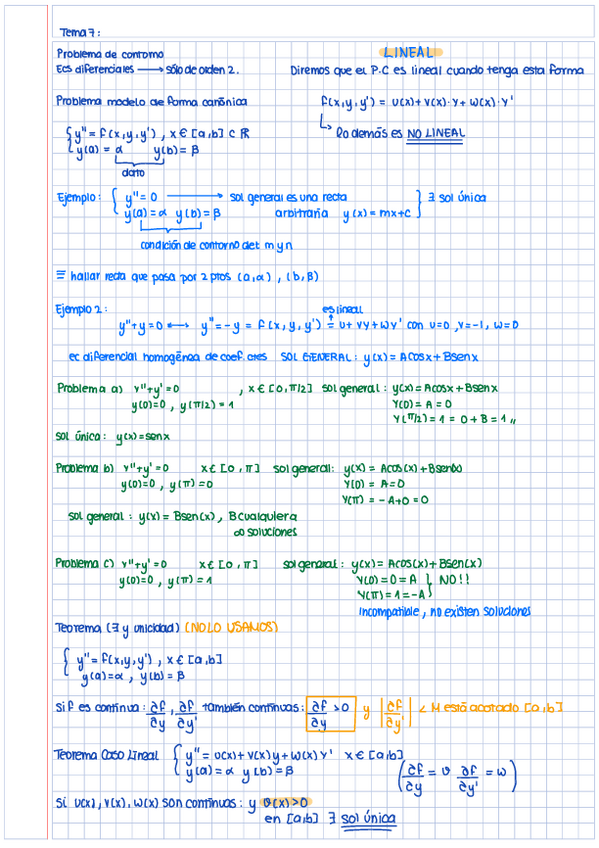 Tema 7:
Problema de contorno
Ecs diferenciales → sólo de orden 2.
LINEAL
Diremos que el P.C es lineal cuando tenga esta forma
f(x,y,y') = u(x)+v(x)·y+w(x)·y'
↳ lo demás es NO LINEAL
Problema modelo de forma canónica
{ y'' = f(x,y,y') , x ∈ [a,b] ⊂ ℝ
y(a) = α y(b) = β
dato
Ejemplo: { y'' = 0 → sol general es una recta } ∃ sol única
y(a) = α y(b) = β arbitraria y(x) = mx+c
condición de contorno det m y n
≡ hallar recta que pasa por 2 ptos (a,α) , (b,β)
Ejemplo 2:
es lineal
y''+y=0 ↔ y''=-y = f(x,y,y') = u+vy+wy' con u=0 ,v=-1, w=0
ec diferencial homogénea de coef. ctes SOL GENERAL: y(x) = Acosx+Bsenx
Problema a) y''+y'=0 , x ∈ [0,π/2] sol general: y(x) = Acosx+Bsenx
y(0)=0 , y(π/2) = 1 y(0) = A = 0
y(π/2) = 1 = 0+B = 1 ,,
sol única: y(x)=senx
Problema b) y''+y'=0 x ∈ [0,π] sol general: y(x) = Acos(x)+Bsen(x)
y(0)=0 , y(π)=0 y(0) = A=0
y(π) = -A+0 = 0
sol general: y(x) = Bsen(x) , B cualquiera
∞ soluciones
Problema c) y''+y'=0 x ∈ [0,π] sol general: y(x) = Acos(x)+Bsen(x)
y(0)=0 , y(π) = 1 y(0)=0=A } NO!!
y(π)=1=-A
Incompatible, no existen soluciones
Teorema (∃ y unicidad) (NO LO USAMOS)
{ y'' = f(x,y,y') , x ∈ [a,b]
y(a)=α , y(b) = β
Si f es continua: ∂f/∂y , ∂f/∂y' también continuas: ∂f/∂y > 0 y |∂f/∂y'| < M está acotado [a,b]
Teorema Caso Lineal { y'' = u(x)+v(x)y+w(x)y' x ∈ [a,b]
y(a) = α y(b) = β (∂f/∂y = v ∂f/∂y' = w)
Si u(x), v(x), w(x) son continuas: y v(x)>0
en [a,b] ∃ sol única